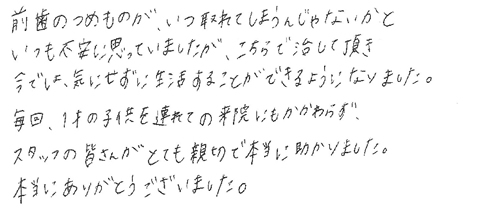 前歯のつめものが、いつ取れてしまうんじゃないかと
いつも不安に思っていましたが、こちらで治して頂き
今では、気にせずに生活することができるようになりました。
毎回、1才の子供を連れての来院にもかかわらず、
スタッフの皆さんがとても親切で本当に助かりました。
本当にありがとうございました。